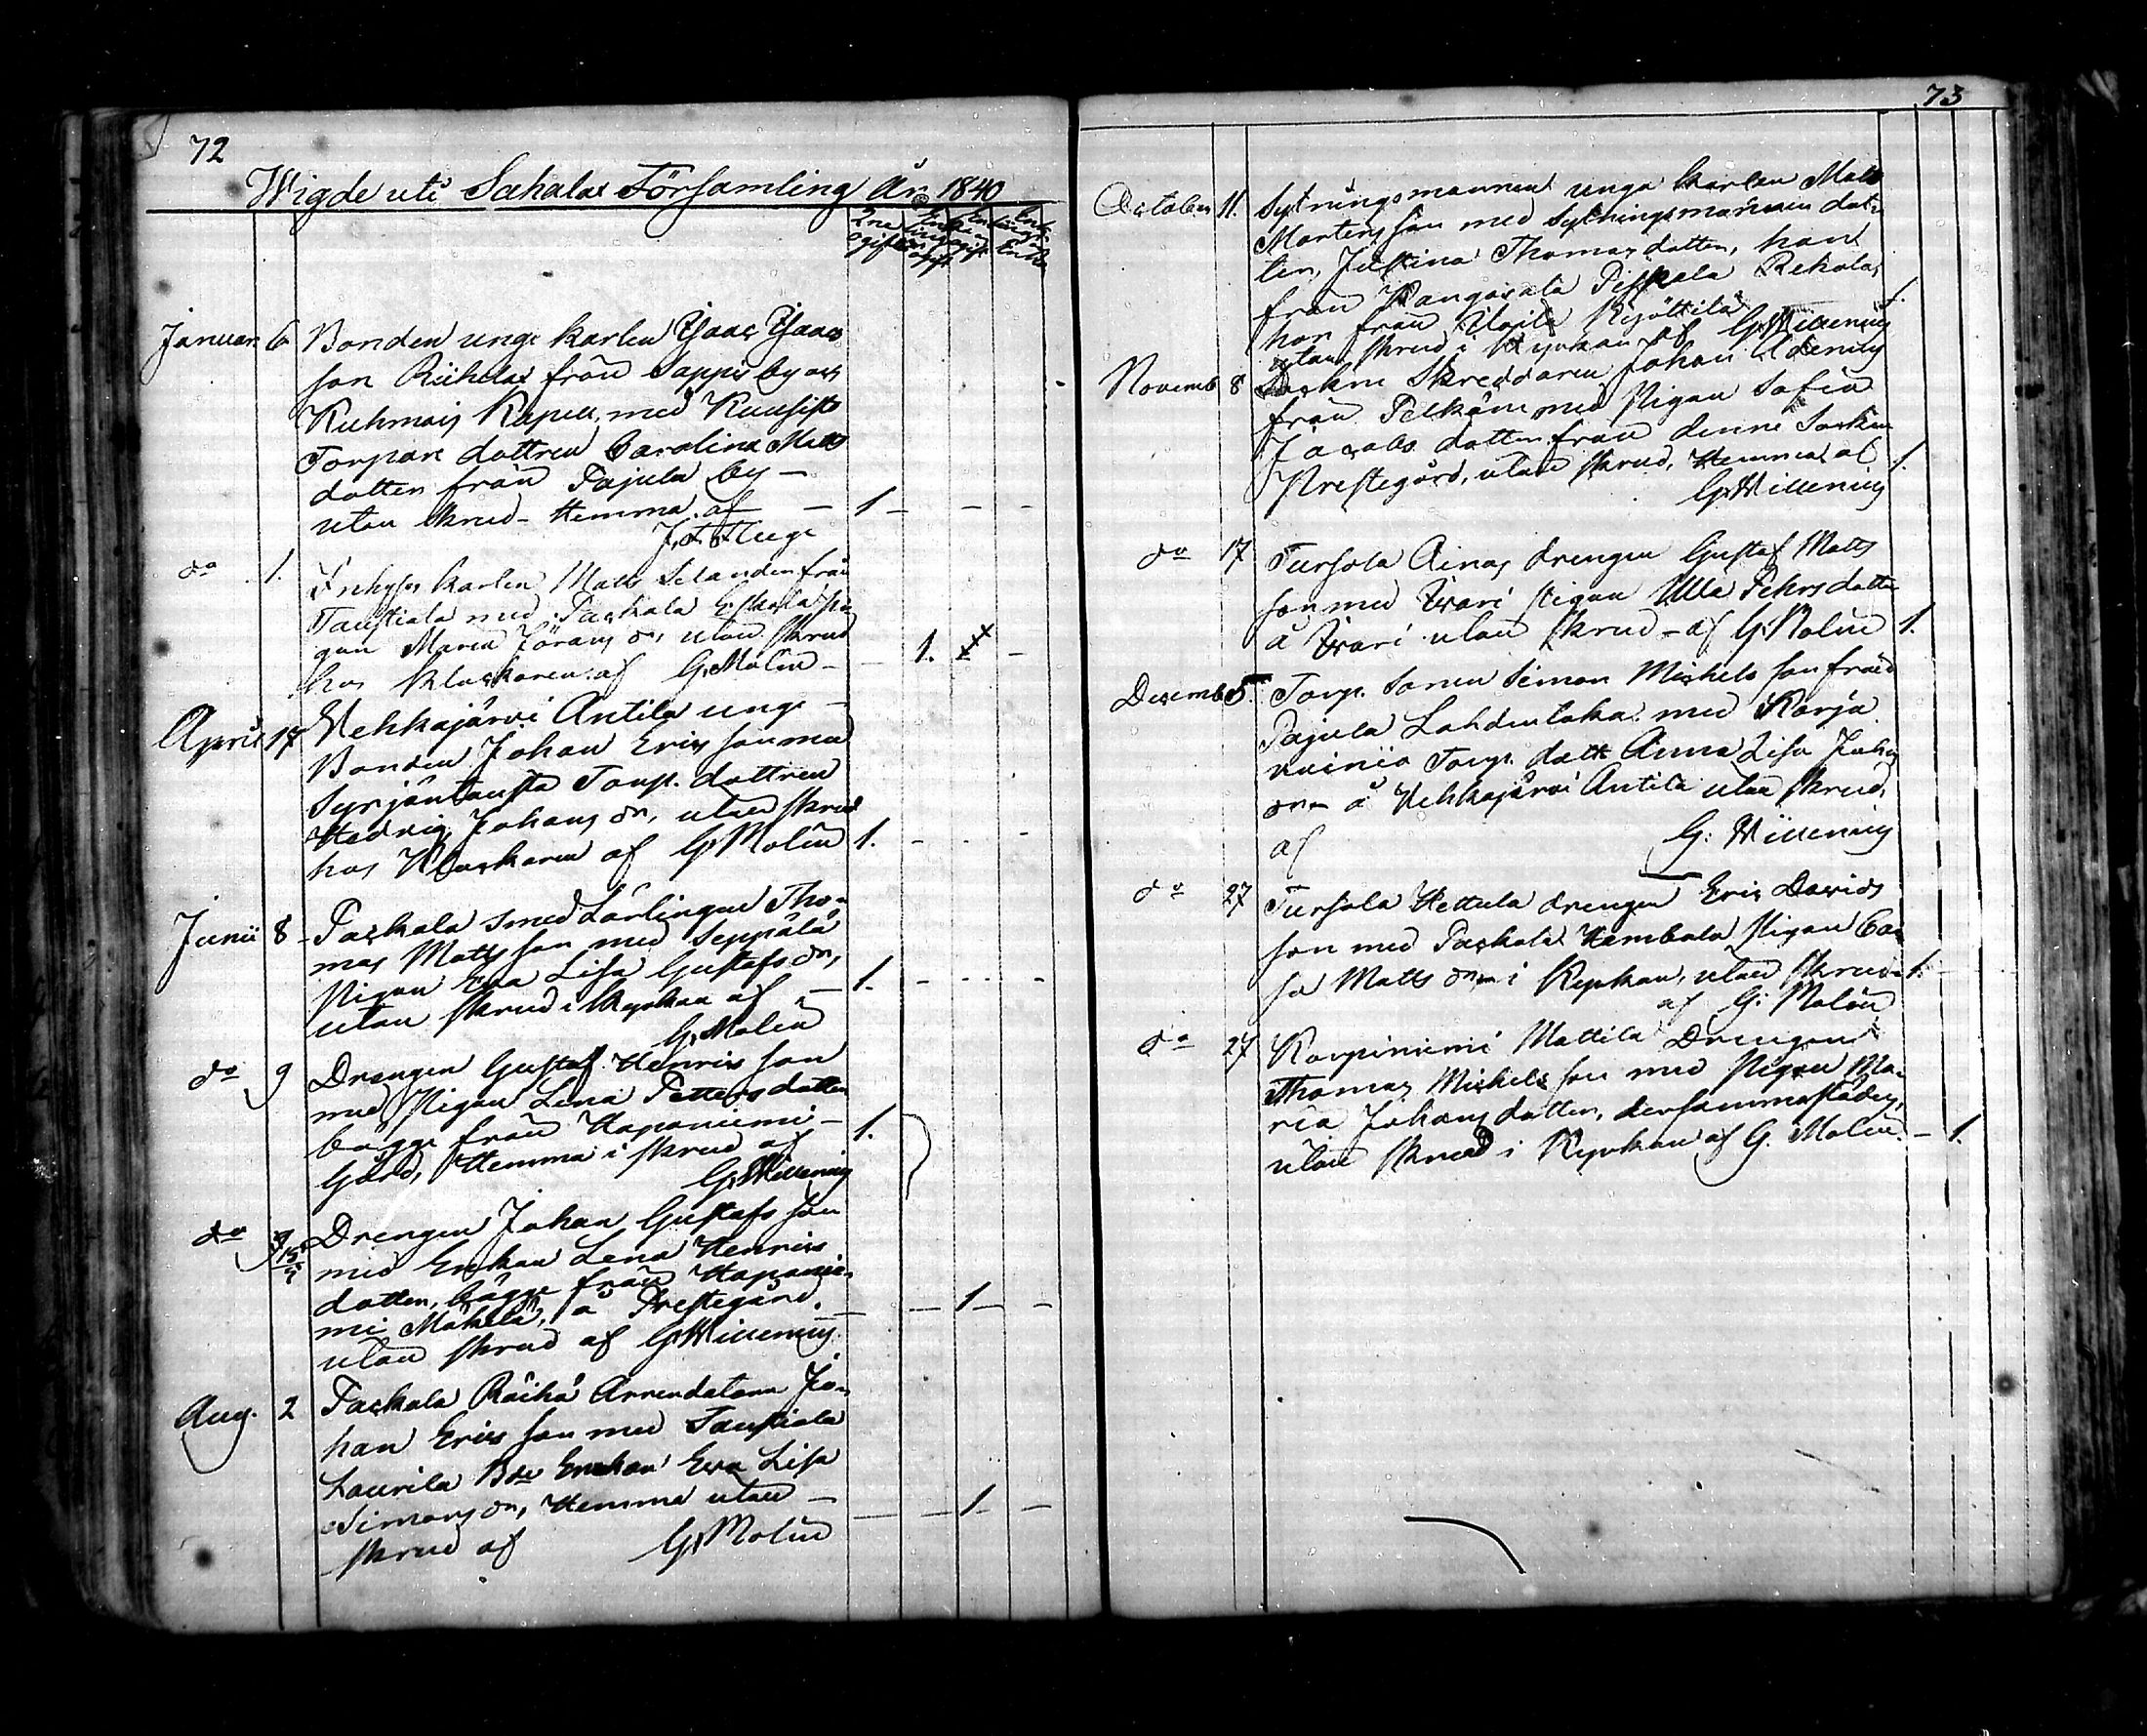 72
Wigde uti Sahalax Församling År 1840
Januar. 6 Bonden unge karlen Isaac Isaacs
son Riihelax från Sappis by och
Kuhmois Kapell, med Kuusisto
Torpare dottren Carolina Matts
dotter från Pajula by –
utan skrud – Hemma af – 1 – – –
do 1. Inhyses karlen Matts Selander från
Taustiala med Packala Eskola pi
gan Maria Görans dr, utan skrud
hos klockaren af G. Molin – – 1. –
April 17 Vehkajärvi Antila unge –
Bonden Johan Erics son med
Syrjäntausta Torp. dottren
Hedvig Johans dr, utan skrud
hos Klockaren af G. Molin 1. – –
Junii 8 Packala smed Lärlingen Tho-
mas Matts son med Seppälä
Pigan Eva Lisa Gustafs dr,
utan skrud i Kyrkan af – 1. – – –
G. Molin
do 9 Drengen Gustaf Henrics son
med Pigan Lena Petters dotter
bägge från Haponiemi –
Gård, Hemma i skrud af 1.
G. Willenius
do Drengen Johan Gustafs son
med Enkan Lena Henrics
dotter, bägge från Haponie-
mi Mäkelä, å Prestegård. – – 1 – –
utan skrud af G. Willenius
Aug. 2 Packala Räihä Arrendatorn Jo-
han Erics son med Taustiala
Laurila Bde Enkan Eva Lisa
Simons dr, Hemma utan – – – 1 – –
skrud af G. Molin
73
October 11. Sytningsmannen unga karlen Matts
Mortens son med Sytningsmannen dot-
ter, Justina Thomas dotter, han
från Kangasala Rekola,
hon från 1.
utan skrud i Kyrkan af G. Willenius
Novemb 8 Sockne Skreddaren Johan
från Pelkäne med Pigan Sofia
Jacobs dotter från denne Sockn
Prestegård, utan skrud, Hemma af 1.
G. Willenius
do 17 Tursola Ainas drengen Gustaf Matts
son med Isvari Pigan Ulla Pehrs dotter
å Isvari utan skrud – af G. Molin 1.
Decemb 5. Torp. Sonen Simon Michels son från
Pajula Lahdentaka med Karja
Torp. dottr Anna Lisa Johs
dr å Vehkajärvi Antila utan skrud,
af G. Willenius
do 27 Tursola Hettula drengen Eric Davids
son med Packala Hembala Pigan Cai
sa Matts dr i Kyrkan, utan skrud 1. –
af G. Molin
do 27 Korpiniemi Mattila Drengen
Thomas Michels son med Pigan Ma-
ria Johans dotter, dersammastädes,
utan skrud i Kyrkan af G. Molin. – 1.